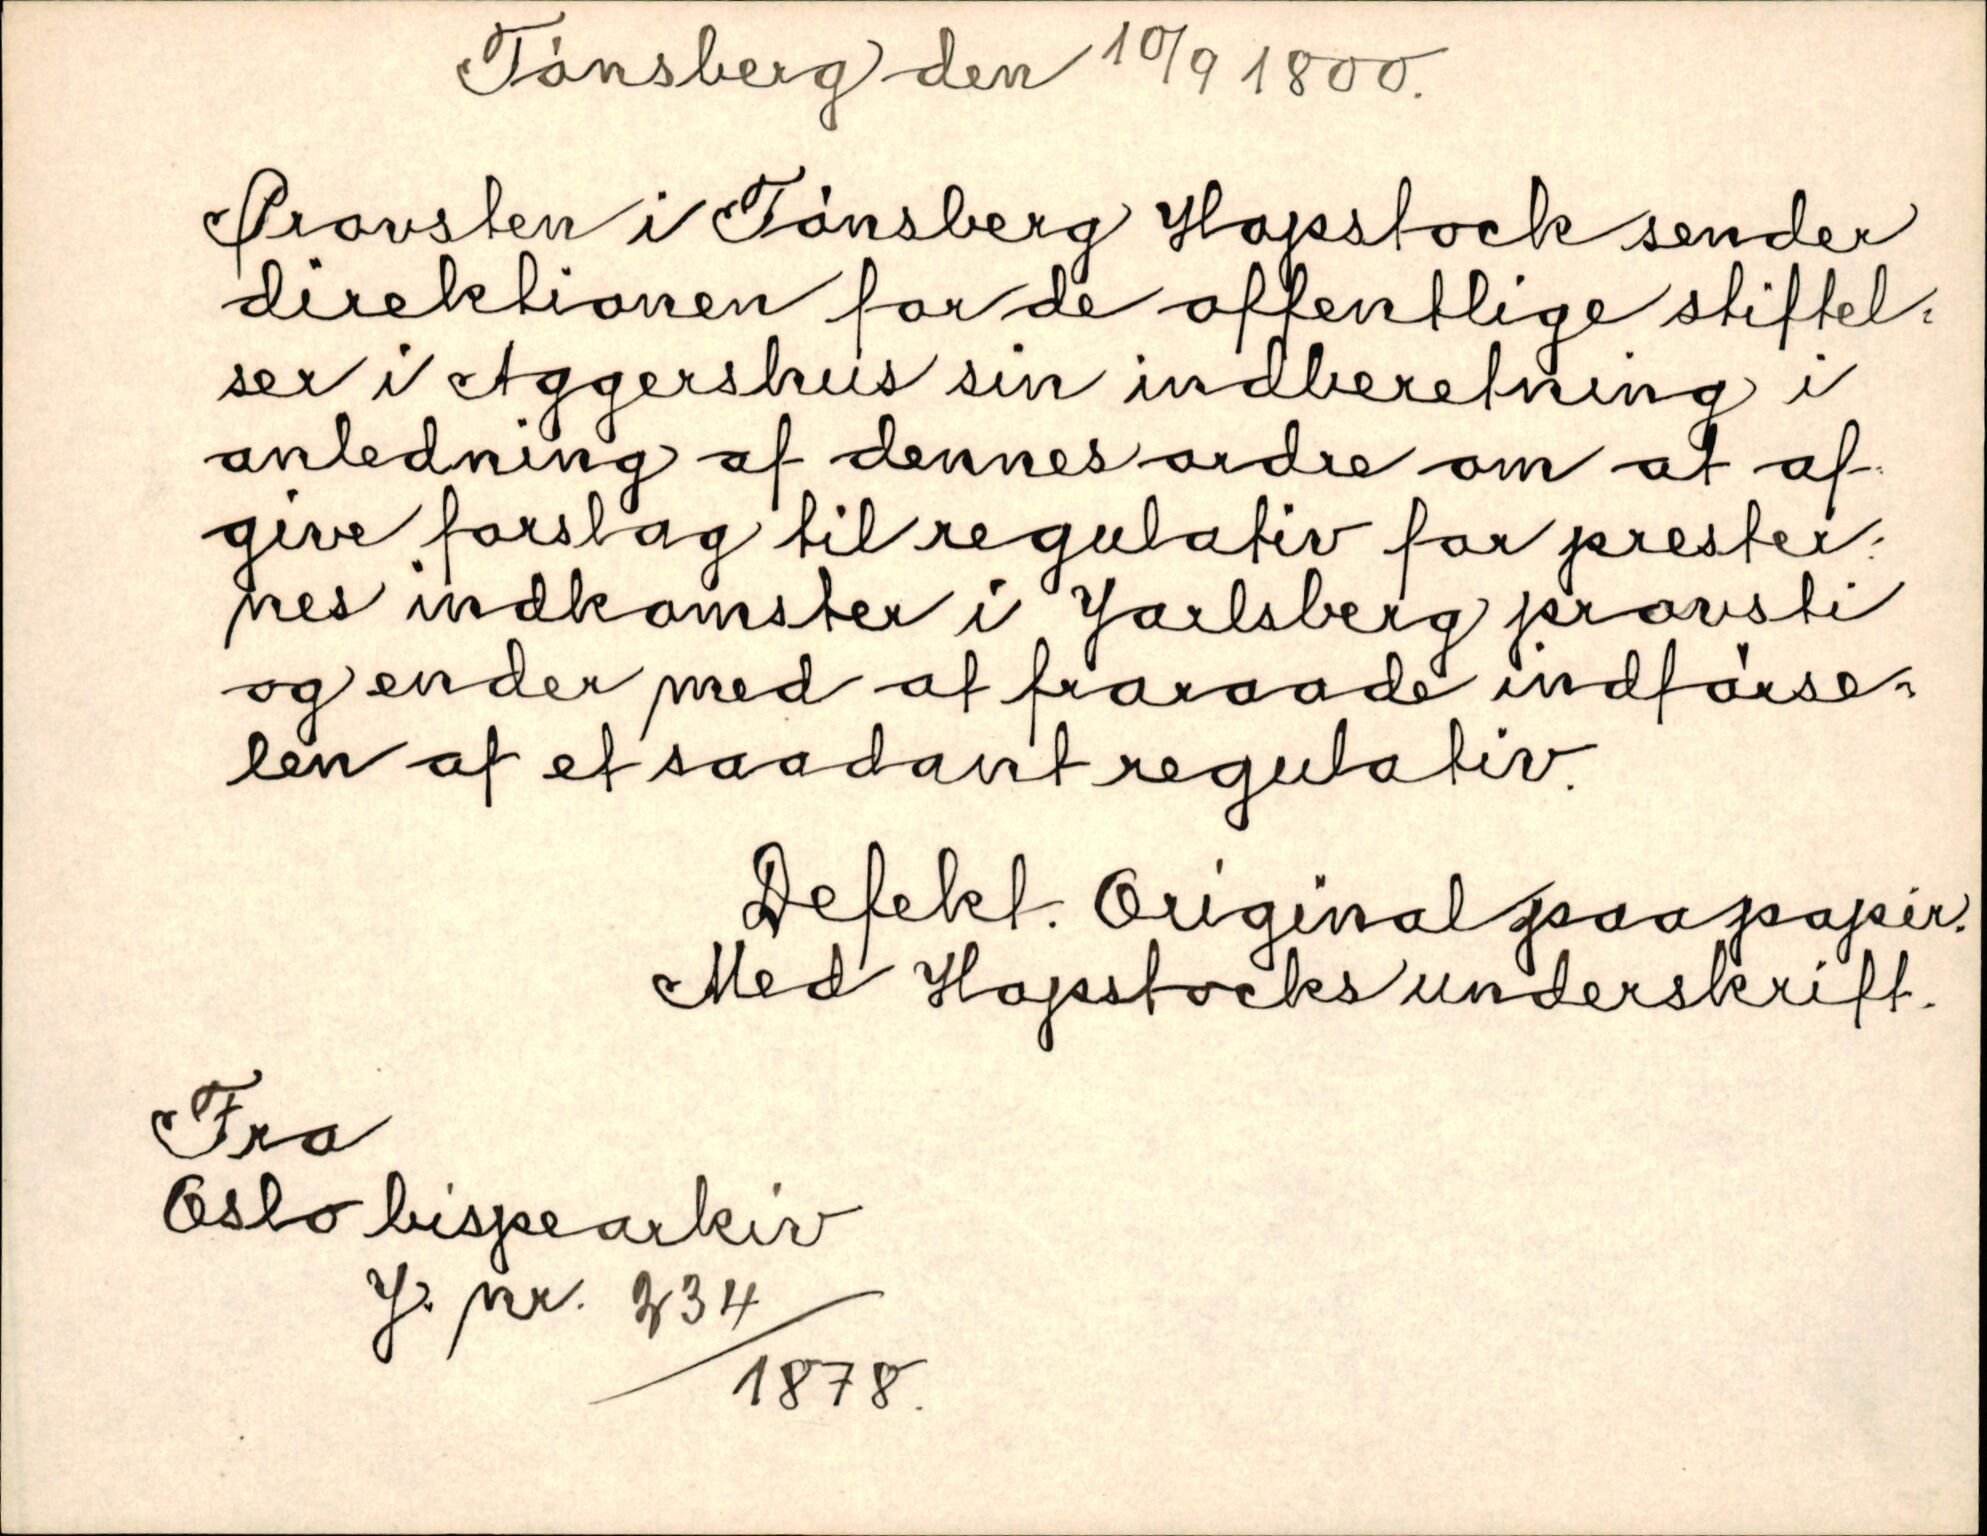 Tónsberg den 10/9 1800.
Provsten i Tónsberg Hopstock sender
direktionen for de offentlige stiftel-
ser i Aggershus sin indberetning i
anledning af dennes ordre om at af-
give forslag til regulativ for prester-
nes indkomster i Jarlsberg provsti
og ender med at fraraade indförse-
len af et saadant regulativ.
Defekt. Original paa papir.
Med Hopstocks underskrift.
Fra
Oslo bispearkiv
J. nr. 234/
1878.